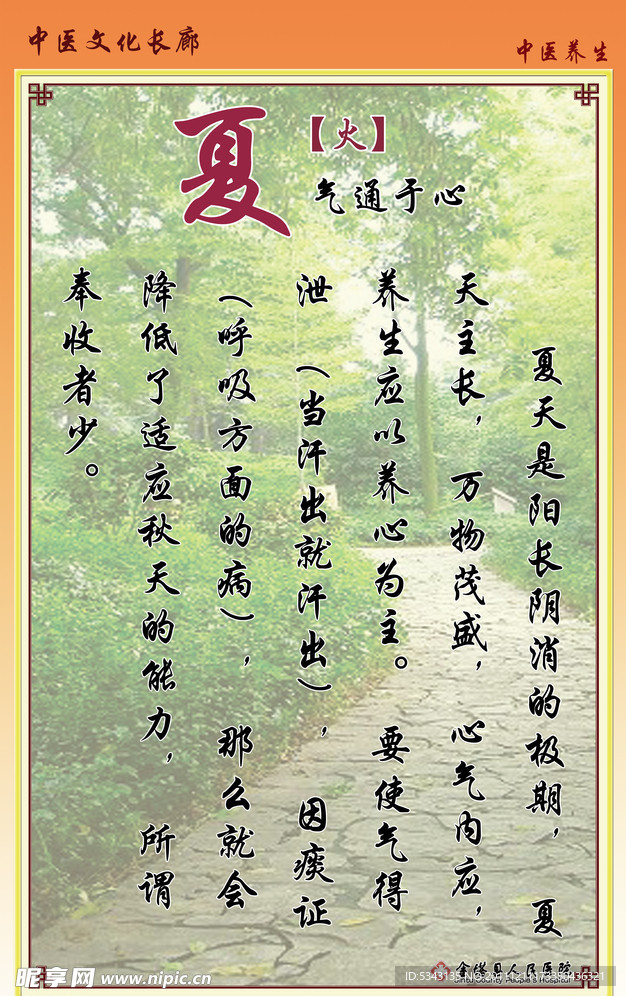 中医文化长廊
中医养生
夏
【火】
气通于心
夏天是阳长阴消的极期，夏
天主长，万物茂盛，心气内应，
养生应以养心为主。要使气得
泄（当汗出就汗出），因痰证
（呼吸方面的病），那么就会
降低了适应秋天的能力，所谓
奉收者少。
人民医院
County People's Hospital
昵享网 www.nipic.cn